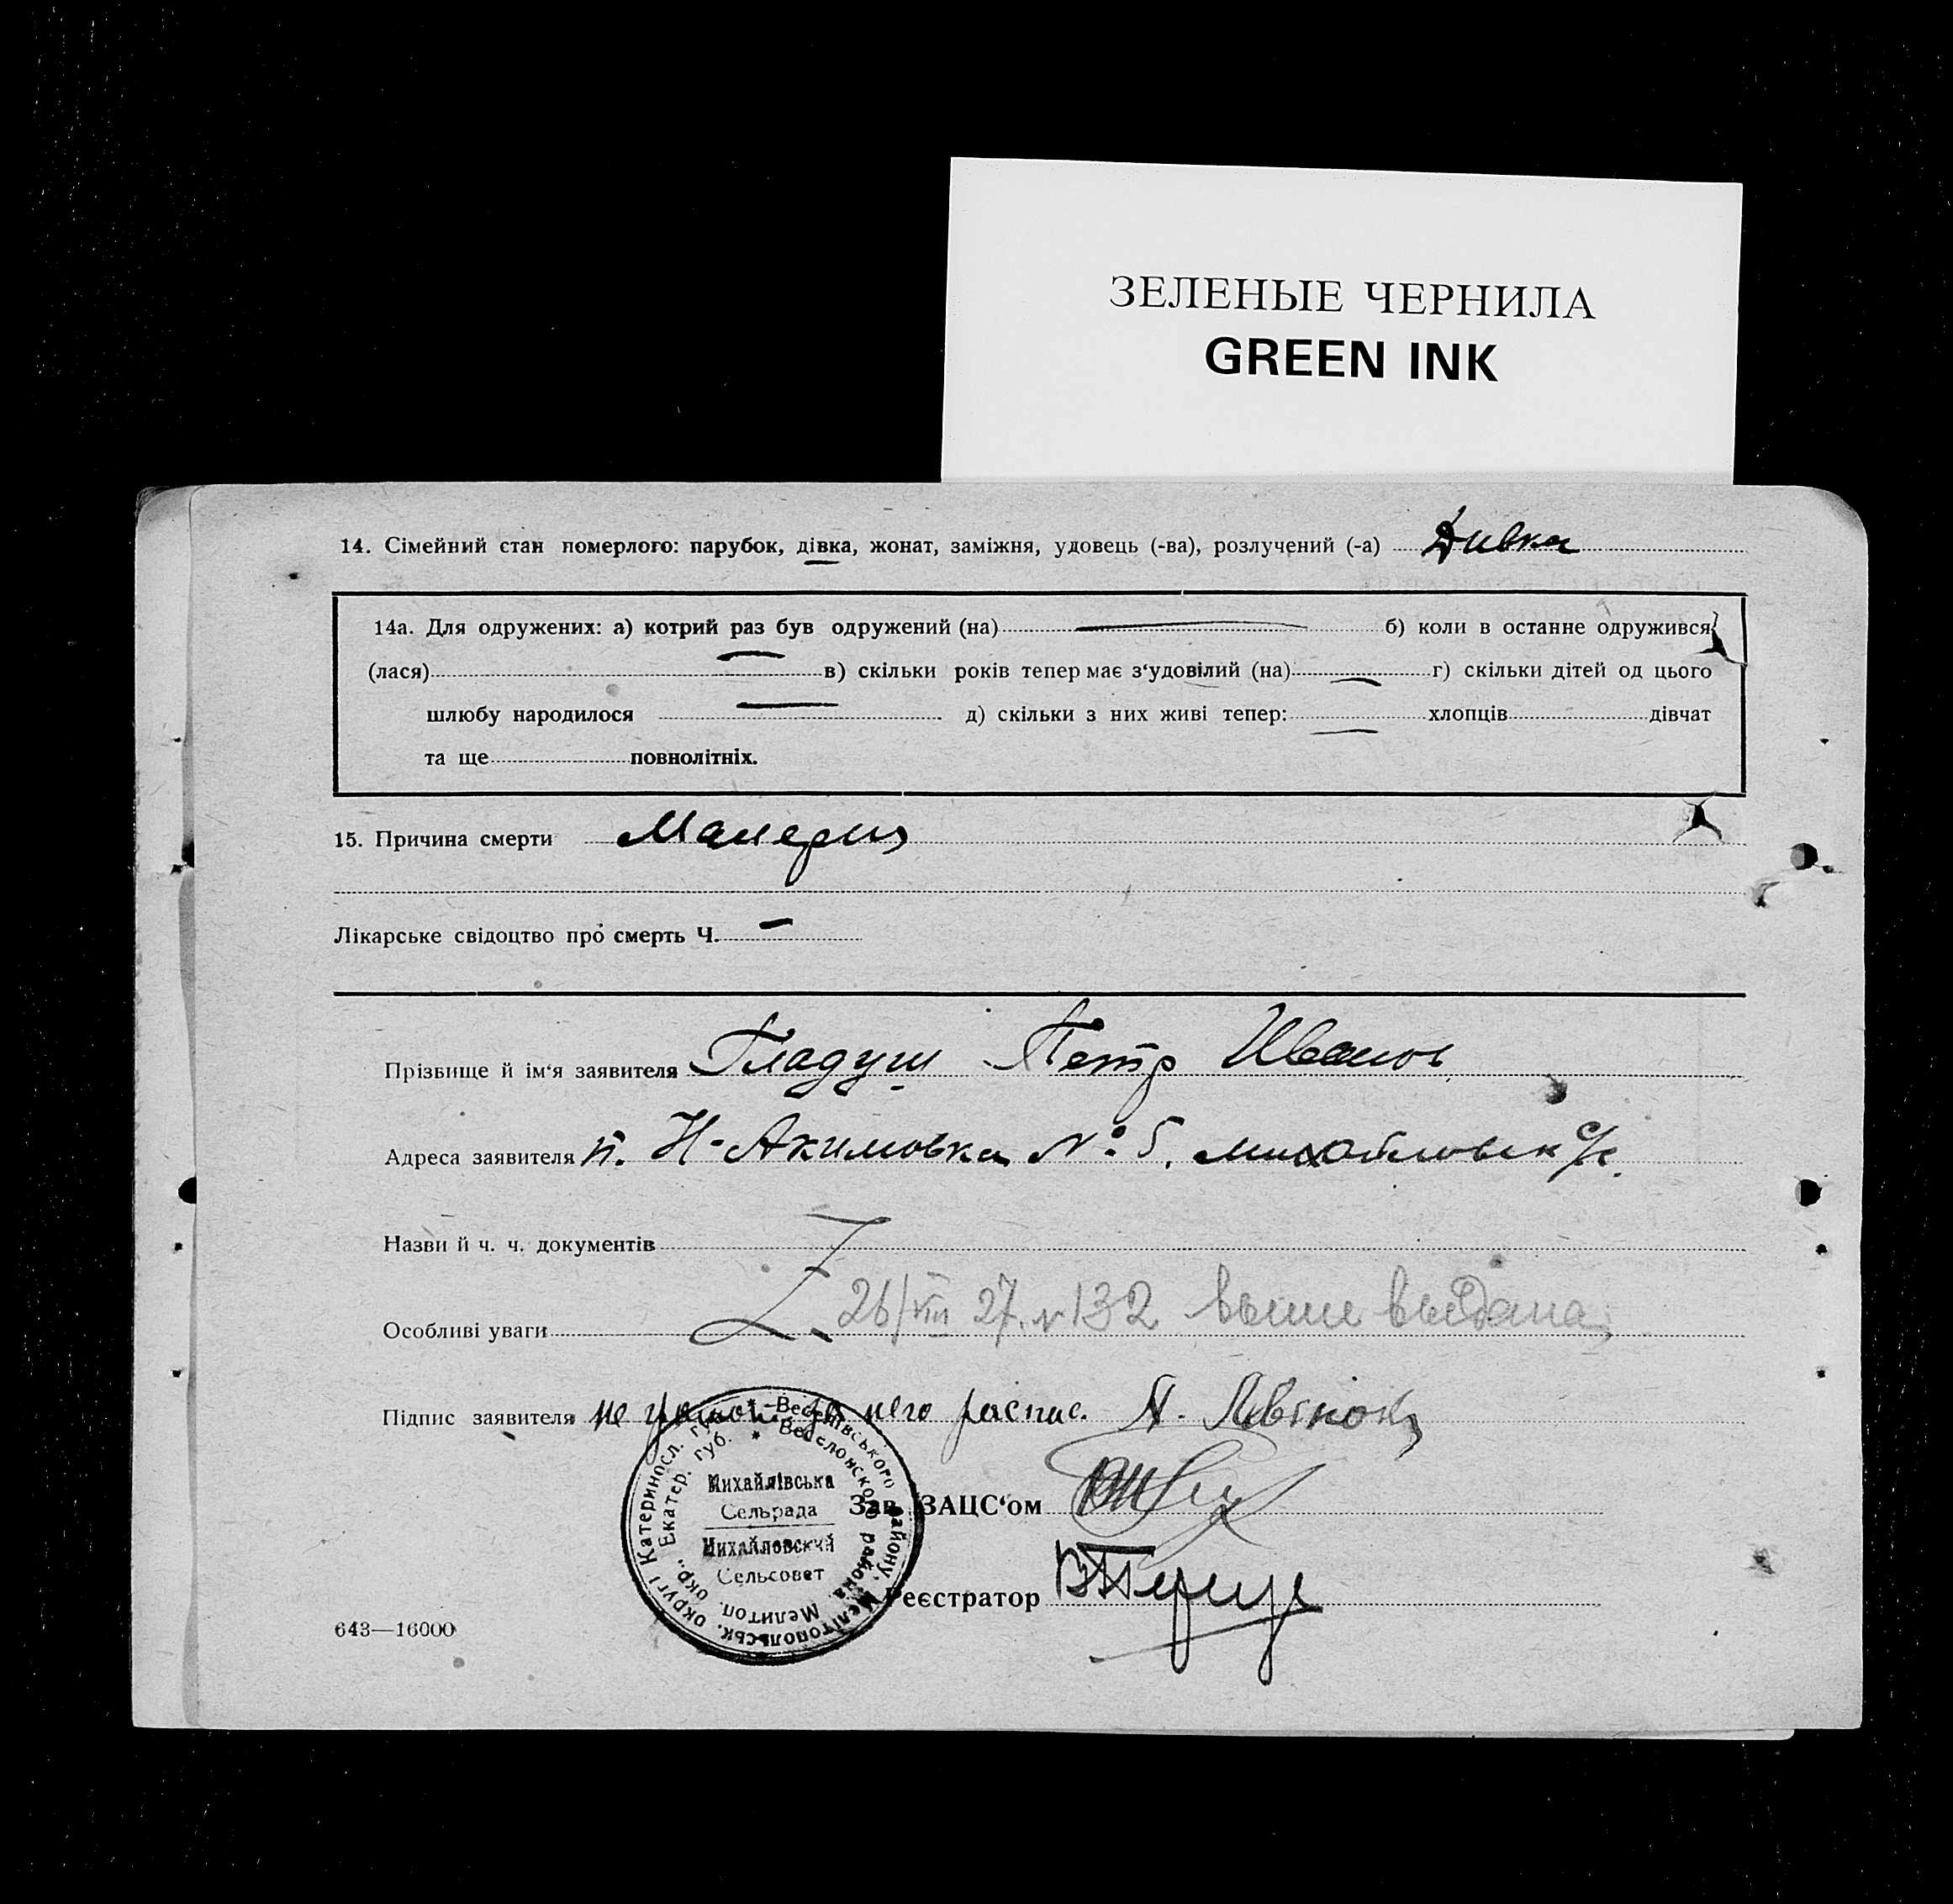 ЗЕЛЕНЫЕ ЧЕРНИЛА
GREEN INK
14. Сімейний стан померлого: парубок, дівка, жонат, заміжня, удовець (-ва), розлучений (-а) Дивка
14а. Для одружених: а) котрий раз був одружений (на) б) коли в останне одружився
(лася) в) скільки років тепер має з'удовілий (на) г) скільки дітей од цього
шлюбу народилося д) скільки з них живі тепер: хлопців дівчат
та ще повнолітніх.
15. Причина смерти Малерия
Лікарське свідоцтво про смерть Ч. —
Прізвище й ім'я заявителя Гладуш Петр Иванов
Адреса заявителя п. Н-Акимовка № 5. михайловск с/с.
Назви й ч. ч. документів
Особливі уваги 26/VIII 27. № 132 выдана
Підпис заявителя не за него распис. А.
Зав. ЗАЦС'ом
Реєстратор
Катериносл. губ. Веселівського району, Мелітопольськ. округі
Екатер. губ. Веселовского района Мелитоп. окр.
Михайлівська
Сельрада
Михайловский
Сельсовет
643—16000